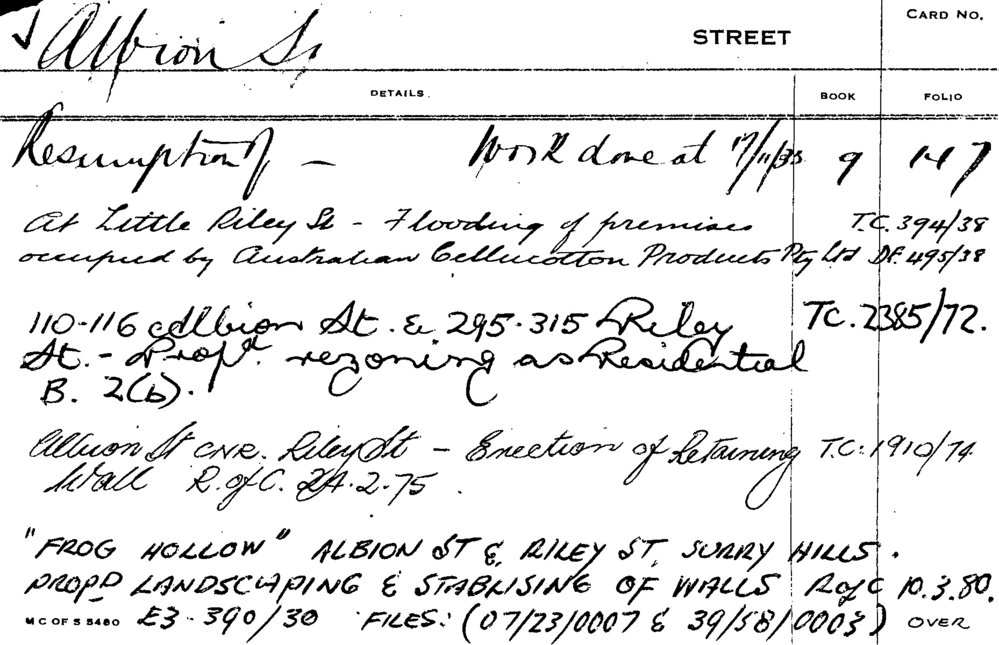 CARD NO.
Albion St STREET
DETAILS BOOK FOLIO
Resumption of — Work done at 17/11/38 9 147
At Little Riley St - Flooding of premises T.C. 394/38
occupied by Australian Cellucotton Products Pty Ltd DF. 495/38
110-116 Albion St. & 295-315 Riley TC. 2385/72.
St. - Prop'd. rezoning as Residential
B. 2(b).
Albion St CNR. Riley St - Erection of Retaining T.C. 1910/74
Wall R. of C. 24.2.75.
"FROG HOLLOW" ALBION ST & RILEY ST, SURRY HILLS.
PROPD LANDSCAPING & STABLISING OF WALLS R of C 10.3.80.
M C OF S 5480 E3-390/30 FILES: (07/23/0007 & 39/58/0003) OVER